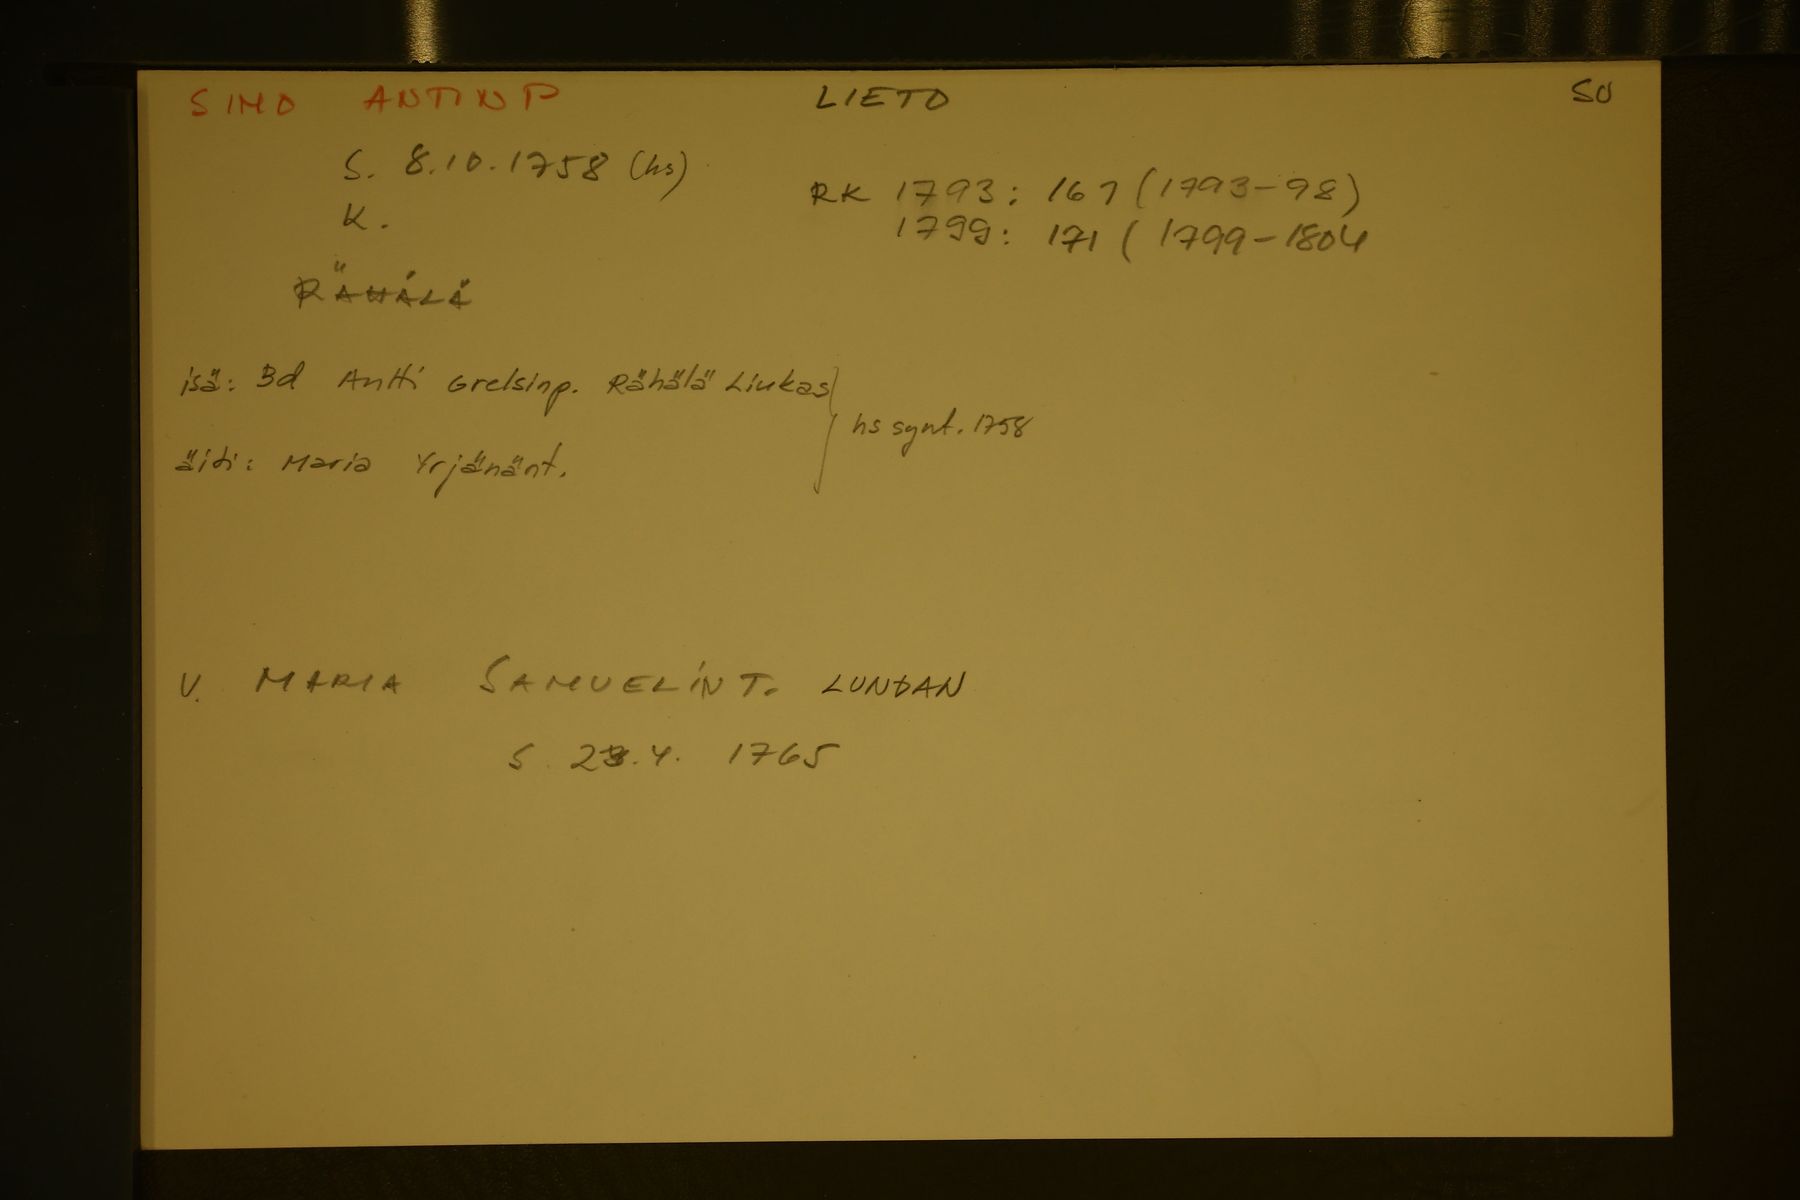 SIMO ANTINP LIETO SU
S. 8.10.1758 (hs)
K.
RK 1793: 167 (1793-98)
1799: 171 ( 1799-1804
RÄHÄLÄ
isä: Bd Antti Grelsinp. Rähälä Liukas
hs synt. 1758
äiti: Maria Yrjänänt.
V. MARIA SAMUELINT. LUNDAN
S. 23.4. 1765